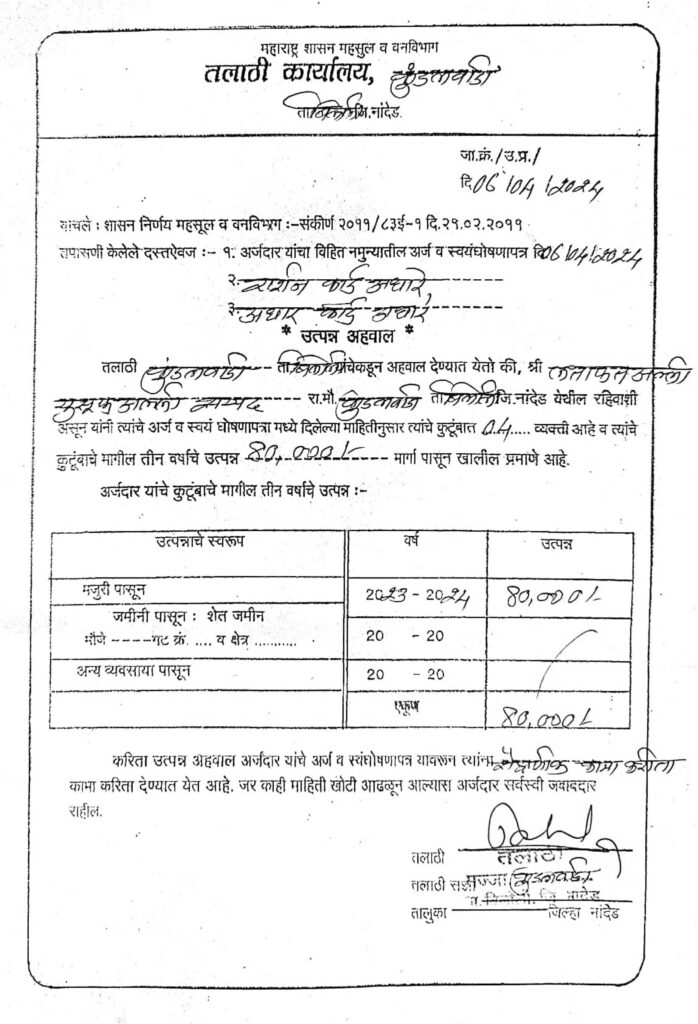 महाराष्ट्र शासन महसुल व वनविभाग
तलाठी कार्यालय, कुंडलवाडी
ता.बिलोली जि.नांदेड.
जा.क्रं./उ.प्र./
दि 06/04/2024
वाचले : शासन निर्णय महसूल व वनविभाग :-संकीर्ण २०११/८३ई-१ दि.२१.०२.२०११
तपासणी केलेले दस्तऐवज :- १. अर्जदार यांचा विहित नमुन्यातील अर्ज व स्वयंघोषणापत्र दि 06/04/2024
२. राशन कार्ड अधारे
३. अधार कार्ड अधारे
* उत्पन्न अहवाल *
तलाठी कुंडलवाडी ता बिलोली यांचेकडून अहवाल देण्यात येतो की, श्री लताफत अल्ली
युसूफ अल्ली सय्यद रा.मौ. कुंडलवाडी ता बिलोली जि.नांदेड येथील रहिवाशी
असून यांनी त्यांचे अर्ज व स्वयं घोषणापत्रा मध्ये दिलेल्या माहितीनुसार त्यांचे कुटूंबात 04..... व्यक्ती आहे व त्यांचे
कुटूंबाचे मागील तीन वर्षाचे उत्पन्न 80,000/- मार्गा पासून खालील प्रमाणे आहे.
अर्जदार यांचे कुटूंबाचे मागील तीन वर्षाचे उत्पन्न :-
उत्पन्नाचे स्वरूप वर्ष उत्पन्न
मजुरी पासून 2023 - 2024 80,000/-
जमीनी पासून : शेत जमीन
मौजे -----गट क्रं. .... य क्षेत्र ........... 20 - 20
अन्य व्यवसाया पासून 20 - 20
एकूण 80,000/-
करिता उत्पन्न अहवाल अर्जदार यांचे अर्ज व स्वंघोषणापत्र यावरून त्यांना शैक्षणीक कामा करीता
कामा करिता देण्यात येत आहे. जर काही माहिती खोटी आढळून आल्यास अर्जदार सर्वस्वी जबाबदार
राहील.
तलाठी तलाठी
तलाठी सज्जा सज्जा कुंडलवाडी
ता. बिलोली, जि. नांदेड
तालुका जिल्हा नांदेड